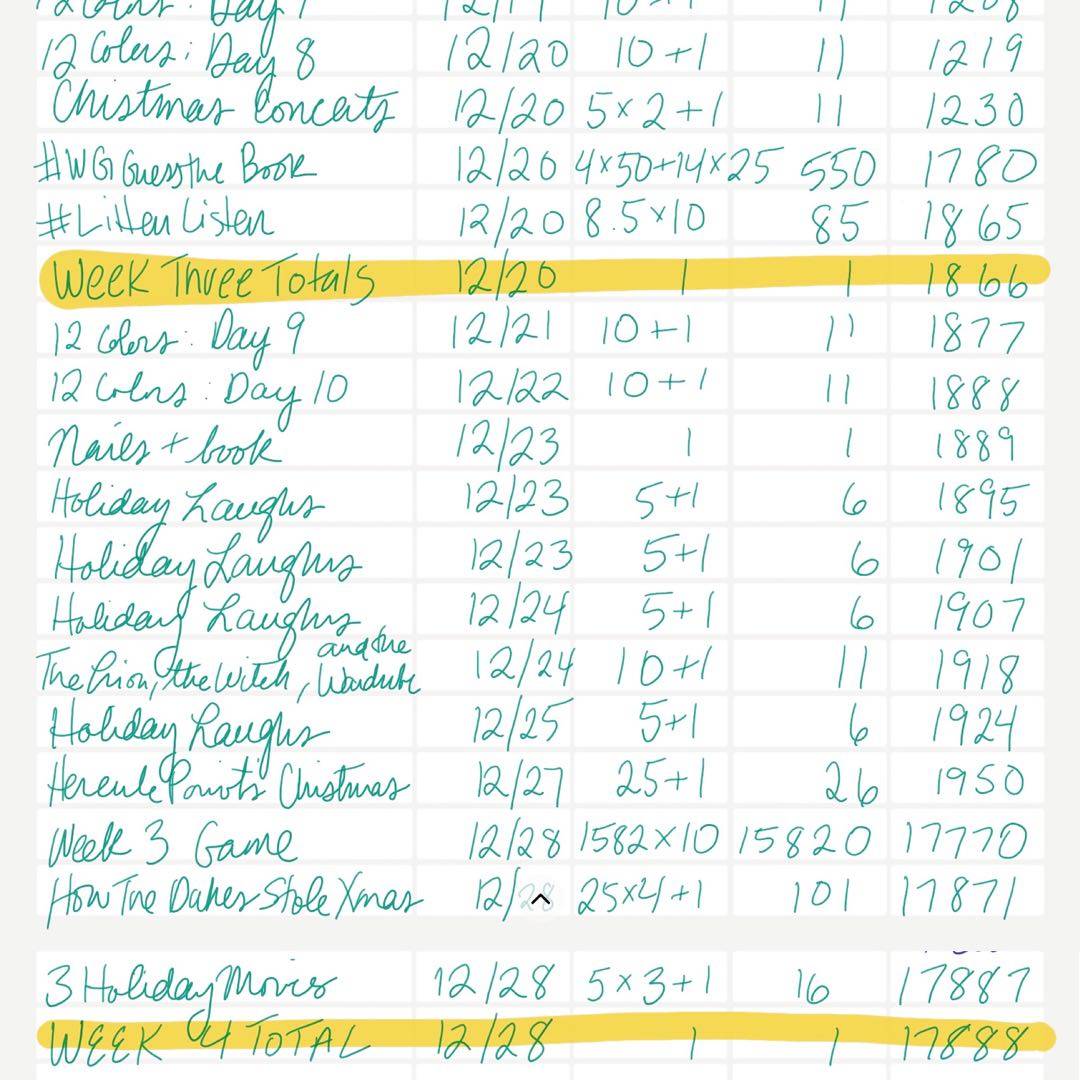 12 Colors: Day 7 12/19 10+1 11 1208
12 Colors: Day 8 12/20 10+1 11 1219
Christmas Concerts 12/20 5×2+1 11 1230
#WGGuesstheBook 12/20 4×50+14×25 550 1780
#LittenListen 12/20 8.5×10 85 1865
Week Three Totals 12/20 1 1 1866
12 Colors: Day 9 12/21 10+1 11 1877
12 Colors: Day 10 12/22 10+1 11 1888
Nailes + book 12/23 1 1 1889
Holiday Laughs 12/23 5+1 6 1895
Holiday Laughs 12/23 5+1 6 1901
Holiday Laughs 12/24 5+1 6 1907
and the
The Lion, the Witch, Wardrobe 12/24 10+1 11 1918
Holiday Laughs 12/25 5+1 6 1924
Hercule Poirot's Christmas 12/27 25+1 26 1950
Week 3 Game 12/28 1582×10 15820 17770
How The Dukes Stole Xmas 12/28 25×4+1 101 17871
3 Holiday Movies 12/28 5×3+1 16 17887
WEEK 4 TOTAL 12/28 1 1 17888